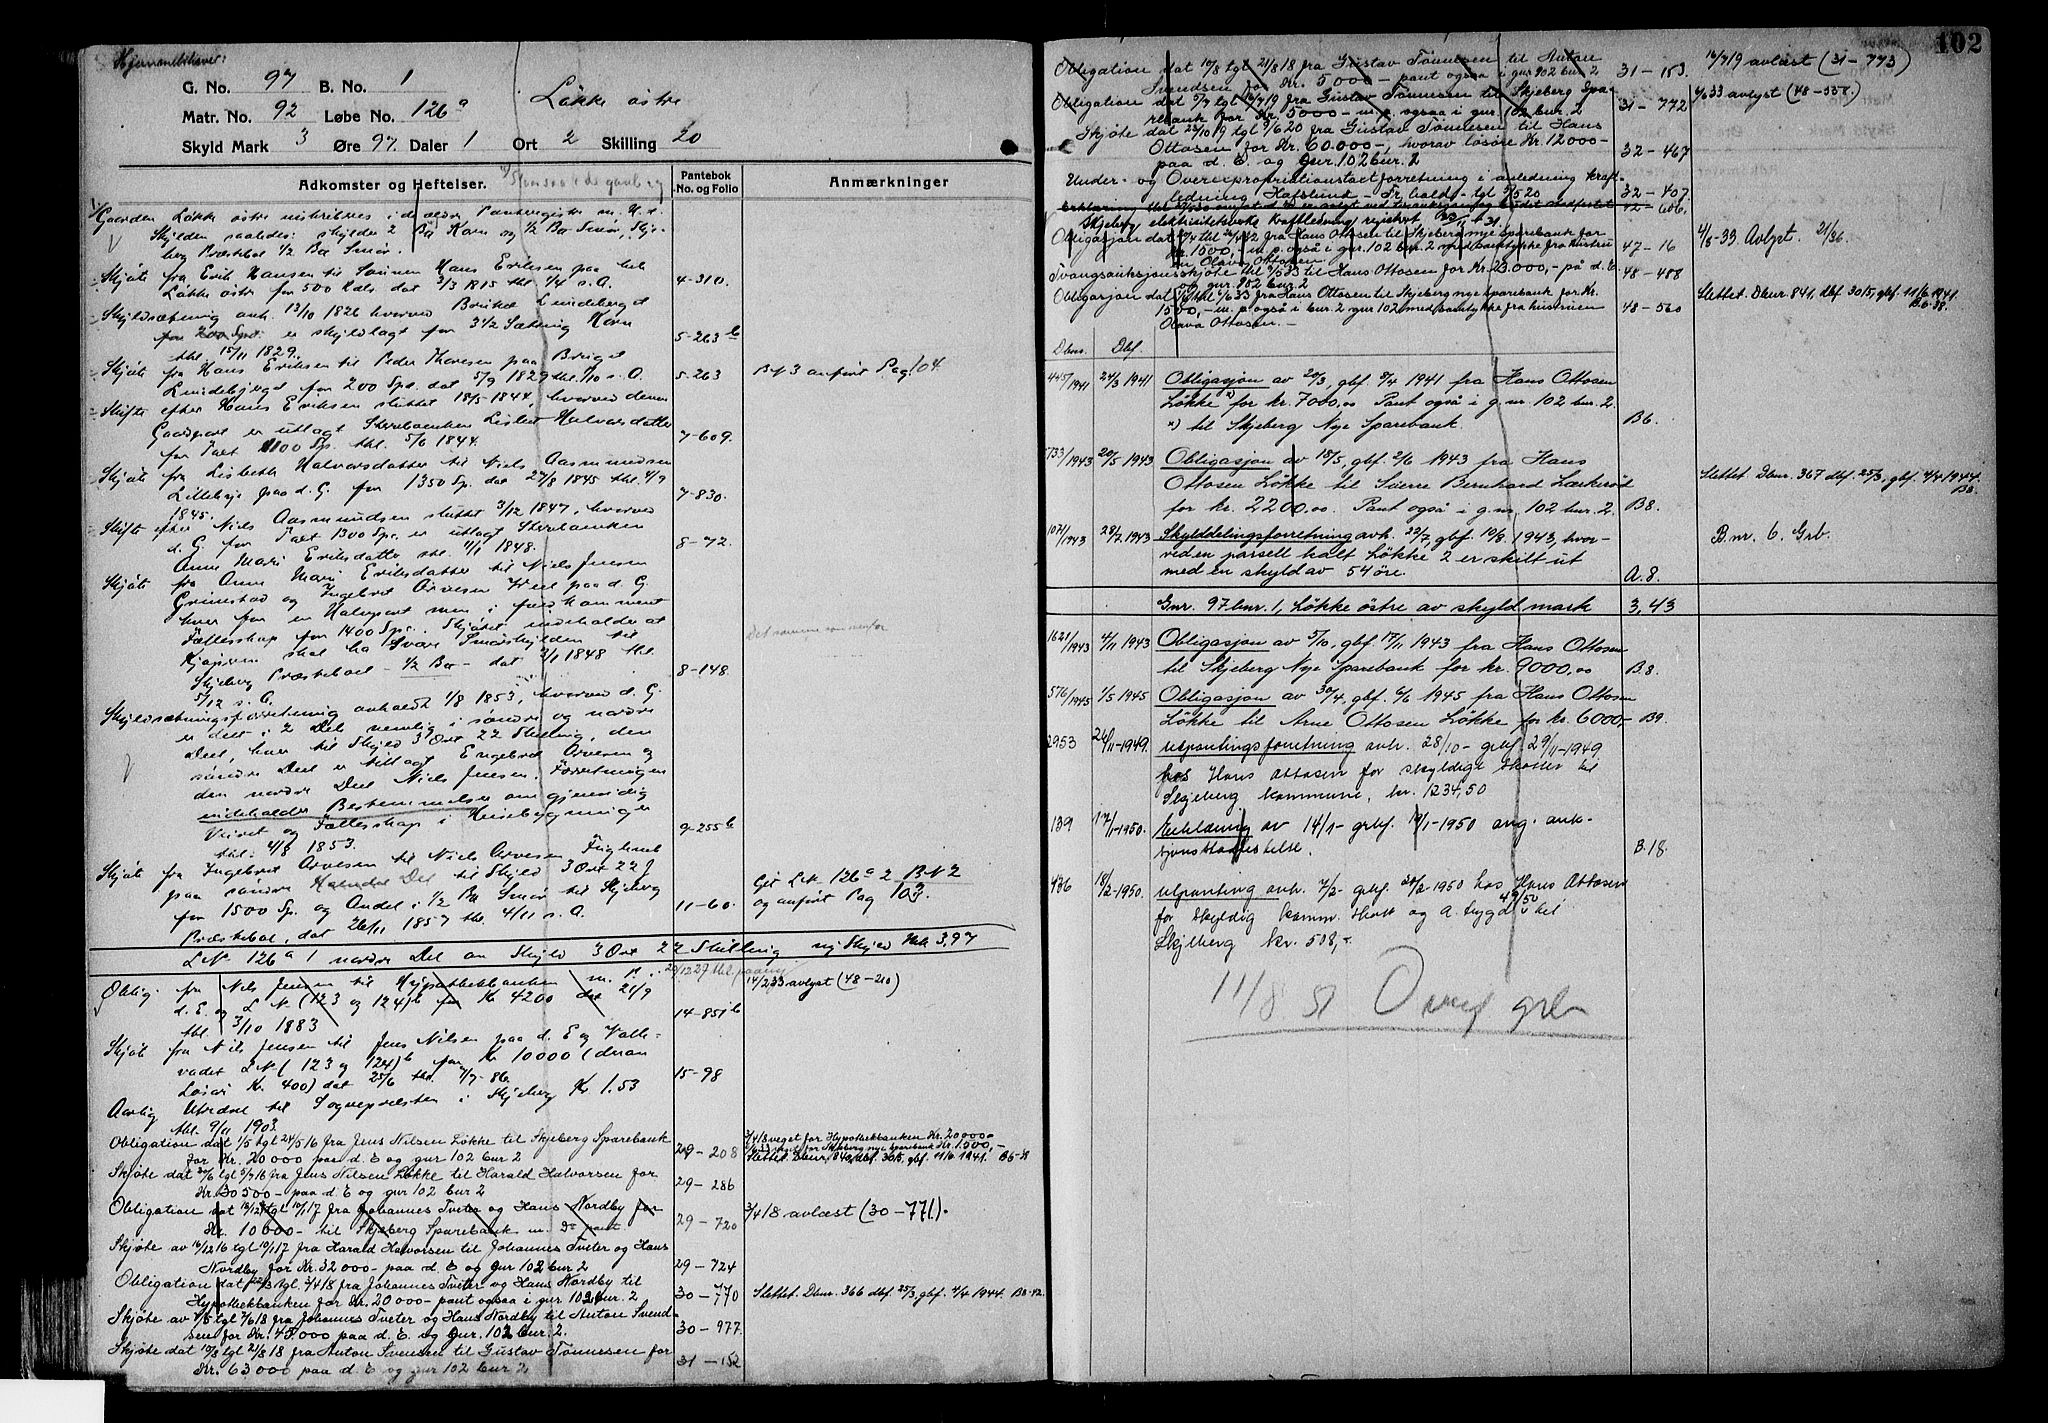 Hjemmelshaver:
G. No. 97 B. No. 1
Matr. No. 92 Løbe No. 126a Løkke østre
Skyld Mark 3 Øre 97 Daler 1 Ort 2 Skilling 20
Adkomster og Heftelser. Pantebok No. og Folio Anmærkninger
Gaarden Løkke østre
Skylden saaledes: skylder 2 Bp Korn og 1/2 Bp Smør, Skje-
berg Præstebol 1/2 Bp Smør.
Skjøte fra Erik Hansen til Sønnen Hans Eriksen paa
Løkke østre for 500 Rdl. dat 3/3 1815 thl. 1/4 s. A. 4-310.
Skyldsætning anh. 13/10 1826 hvorved
for 200 Spd. er skyldlagt for 3 1/2 Sætting Korn
thl. 15/11 1829. 5-263b
Skjøte fra Hans Eriksen til Peder Thoresen paa
Lindebjerget for 200 Spd. dat 5/9 1829 thl. 7/10 s. A. 5-263 B.N 3 anført Pag 104.
Skifte efter Hans Eriksen sluttet 18/5 1844, hvorved denne
Gaardpart er udlagt Stervboenken Lisbet Halvorsdatter
for Taxt 1100 Sp. thl. 5/6 1844. 7-609.
Skjøte fra Lisbeth Halvorsdatter til Niels Aasmundsen
Lilleberg paa d. G. for 1350 Sp. dat 27/8 1845 thl. 4/9
1845. 7-830.
Skifte efter Niels Aasmundsen sluttet 3/12 1847, hvorved
d. G. for Taxt 1300 Spd. er udlagt Stervboenken
Anne Mari Eriksdatter thl. 11/1 1848. 8-72.
Skjøte fra Anne Mari Eriksdatter til Niels Jensen
Grimstad og Ingebret Arvesen Hvel paa d. G
hver for en Halvpart men i
Fællesskap for 1400 Spd. Skjøtet indeholder at
Kjøperen skal ha Svare Smørskylden til
Skjeberg Præstebol - 1/2 Bp - dat 3/1 1848 thl.
5/12 s. A. 8-148.
Skyldsætningsforretning anholdt 1/8 1853, hvorved d. G.
er delt i 2 Dele nemlig i søndre og nordre
Deel, hver til Skyld 3 Ort 22 Skilling, den
søndre Deel er tillagt Engebret Arvesen og
den nordre Deel Niels Jensen. Forretningen
indeholder Bestemmelser om gjensidig
Veiret og Fællesskap i Husebygninger
thl. 4/8 1853. 9-255b
Skjøte fra Ingebret Arvesen til Niels Arvesen Fuglerud
paa søndre Halvdel Del til Skyld 3 Ort 22 s
for 1500 Sp. og Andel i 1/2 Bp Smør til Skjeberg
Præstebol, dat 26/11 1857 thl. 4/11 s. A. 11-60. Git L.N. 126a 2 B.N 2
og anført Pag 103.
L.N. 126a 1 nordre Del av Skyld 3 Ort 22 Skilling ny Skyld Mk 3,97
Oblig. fra Niels Jensen til Hypothekbanken m. P. i
d. E. og L.N. (123 og 124)b for Kr 4200 dat 21/9
thl. 3/10 1883 14-851b 14/2 33 avlyst (48-210)
Skjøte fra Niels Jensen til Jens Nilsen paa d. E og Valle-
vadet L.N (123 og 124)b for Kr 10000 (derav
Løsøre Kr. 400) dat 25/6 thl. 7/7-86. 15-98
Aarlig Utredsel til Sognepræsten i Skjeberg Kr 1.53
thl. 9/11 1903.
Obligation dat 1/5 tgl 24/5 16 fra Jens Nilsen Løkke til Skjeberg Sparebank
for Kr. 20000 paa d. E og gnr 102 bnr 2 29-208 3/4 18 veget for Hypothekbanken Kr. 20000-
Slettet. Dbnr. 840, dbf. 30/5, gbf. 11/6 1941. B6-38
Skjøte dat 30/6 tgl 5/7 16 fra Jens Nilsen Løkke til Harald Halvorsen for
Kr. 30500- paa d. E og gnr 102 bnr 2 29-286
Obligation dat 16/12 tgl 10/1 17 fra Johannes Tveter og Hans Nordby for
Kr. 10000- til Skjeberg Sparebank m. Do pant. 29-720 3/4 18 avlæst (30-771).
Skjøte av 16/12 16 tgl 10/1 17 fra Harald Halvorsen til Johannes Tveter og Hans
Nordby for Kr. 32000- paa d. E og gnr 102 bnr 2 29-724
Obligation dat 22/3 tgl. 3/4 18 fra Johannes Tveter og Hans Nordby til
Hypothekbanken for Kr. 20000- pant ogsaa i gnr 102 bnr. 2 30-770 Slettet. Dbnr. 366 dbf. 25/3, gbf. 4/4 1944. B8-42.
Skjøte av 4/5 tgl 7/6 18 fra Johannes Tveter og Hans Nordby til Anton Svend-
sen for Kr. 45000 paa d. E. og Gnr. 102 bnr. 2. 30-977.
Skjøte dat 10/8 tgl 21/8 18 fra Anton Svensen til Gustav Tønnesen for
Kr. 63000 paa d. E og gnr 102 bnr 2 31-152
102
Obligation dat 10/8 tgl 21/8 18 fra Gustav Tønnesen til Anton
Svendsen for Kr. 5000- pant ogsaa i gnr 102 bnr. 2 31-153. 16/7 19 avlæst (31-773)
Obligation dat 5/7 tgl 16/7 19 fra Gustav Tønnesen til Skjeberg Spa-
rebank for Kr. 5000- m. p. ogsaa i gnr. 102 bnr. 2 31-772 4/6 33 avlyst (48-558.)
Skjøte dat 25/10 19 tgl 3/6 20 fra Gustav Tønnesen til Hans
Ottosen for Kr. 60.000-, hvorav løsøre Kr. 12000-
paa d. E. og Gnr. 102 bnr. 2 32-467
Under- og Overexpropriationstaxtforretning i anledning kraft-
ledning Hafslund - Fr.hald - tgl 5/5 20 32-407
42-606.
Skjeberg elektrisitetsverks kraftledning registrert
Obligasjon dat 20/4 tbl 26/4 32 fra Hans Ottosen til Skjeberg nye sparebank for
Kr. 1500, m. p. også i gnr. 102 bnr. 2 med samtykke fra hustru
Olava Ottosen. 47-16 4/5-33. Avlyst. 21/36.
Tvangsauksjonsskjøte tbl 4/5 33 til Hans Ottosen for Kr. 23.000,- på d. E.
og gnr. 102 bnr. 2 48-488
Obligasjon dat 1/6 tbl 6/6 33 fra Hans Ottosen til Skjeberg nye sparebank for Kr.
1500,- m. p. også i bnr. 2 gnr 102 med samtykke fra hustruen
Olava Ottosen.- 48-560 Slettet. Dbnr. 841, dbf 30/5, gbf. 11/6 1941.
B6-38.
Dbnr. Dbf.
445/1941 24/3 1941 Obligasjon av 20/3, gbf. 8/4 1941 fra Hans Ottosen
Løkke x) for kr. 7000,00 Pant også i g.nr. 102 bnr. 2.
x) til Skjeberg Nye Sparebank. B6.
733/1943 20/5 1943 Obligasjon av 18/5, gbf. 2/6 1943 fra Hans
Ottosen Løkke til Sverre Bernhard Lækerød
for kr. 2200,00. Pant også i g.nr. 102 bnr. 2. B8. Slettet. Dbnr. 367 dbf. 25/3, gbf. 4/4 1944.
B8.
1071/1943 28/7 1943 Skylddelingsforretning avh. 22/7, gbf. 10/8 1943, hvor-
ved en parsell kalt Løkke 2 er skilt ut
med en skyld av 54 øre. A. 8. B.nr. 6. Grb.
Gnr. 97 bnr. 1, Løkke østre av skyld mark 3,43
1621/1943 4/11 1943 Obligasjon av 5/10, gbf. 17/11 1943 fra Hans Ottosen
til Skjeberg Nye Sparebank for kr. 9000,00 B.8.
576/1945 1/5 1945 Obligasjon av 30/4, gbf. 6/6 1945 fra Hans Ottosen
Løkke til Arne Ottosen Løkke for kr. 6000,- B9.
2953 26/11-1949. Utpantingsforretning avh. 28/10- grbf. 29/11-1949,
hos Hans Ottosen for skyldige skatter til
Skjeberg kommune, kr. 1234,50
139 17/1-1950. Beslutning av 14/1- grbf. 19/1-1950 ang. auk-
sjons B.18.
436 18/2-1950. Utpanting avh. 7/2- grbf. 20/2-1950 hos Hans Ottosen
for skyldig komm. skatt og a. trygd 49/50 til
Skjeberg kr. 508,-
11/8 51 Overf grb